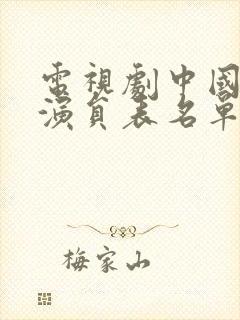 電視劇中國
演員表名單
梅家山